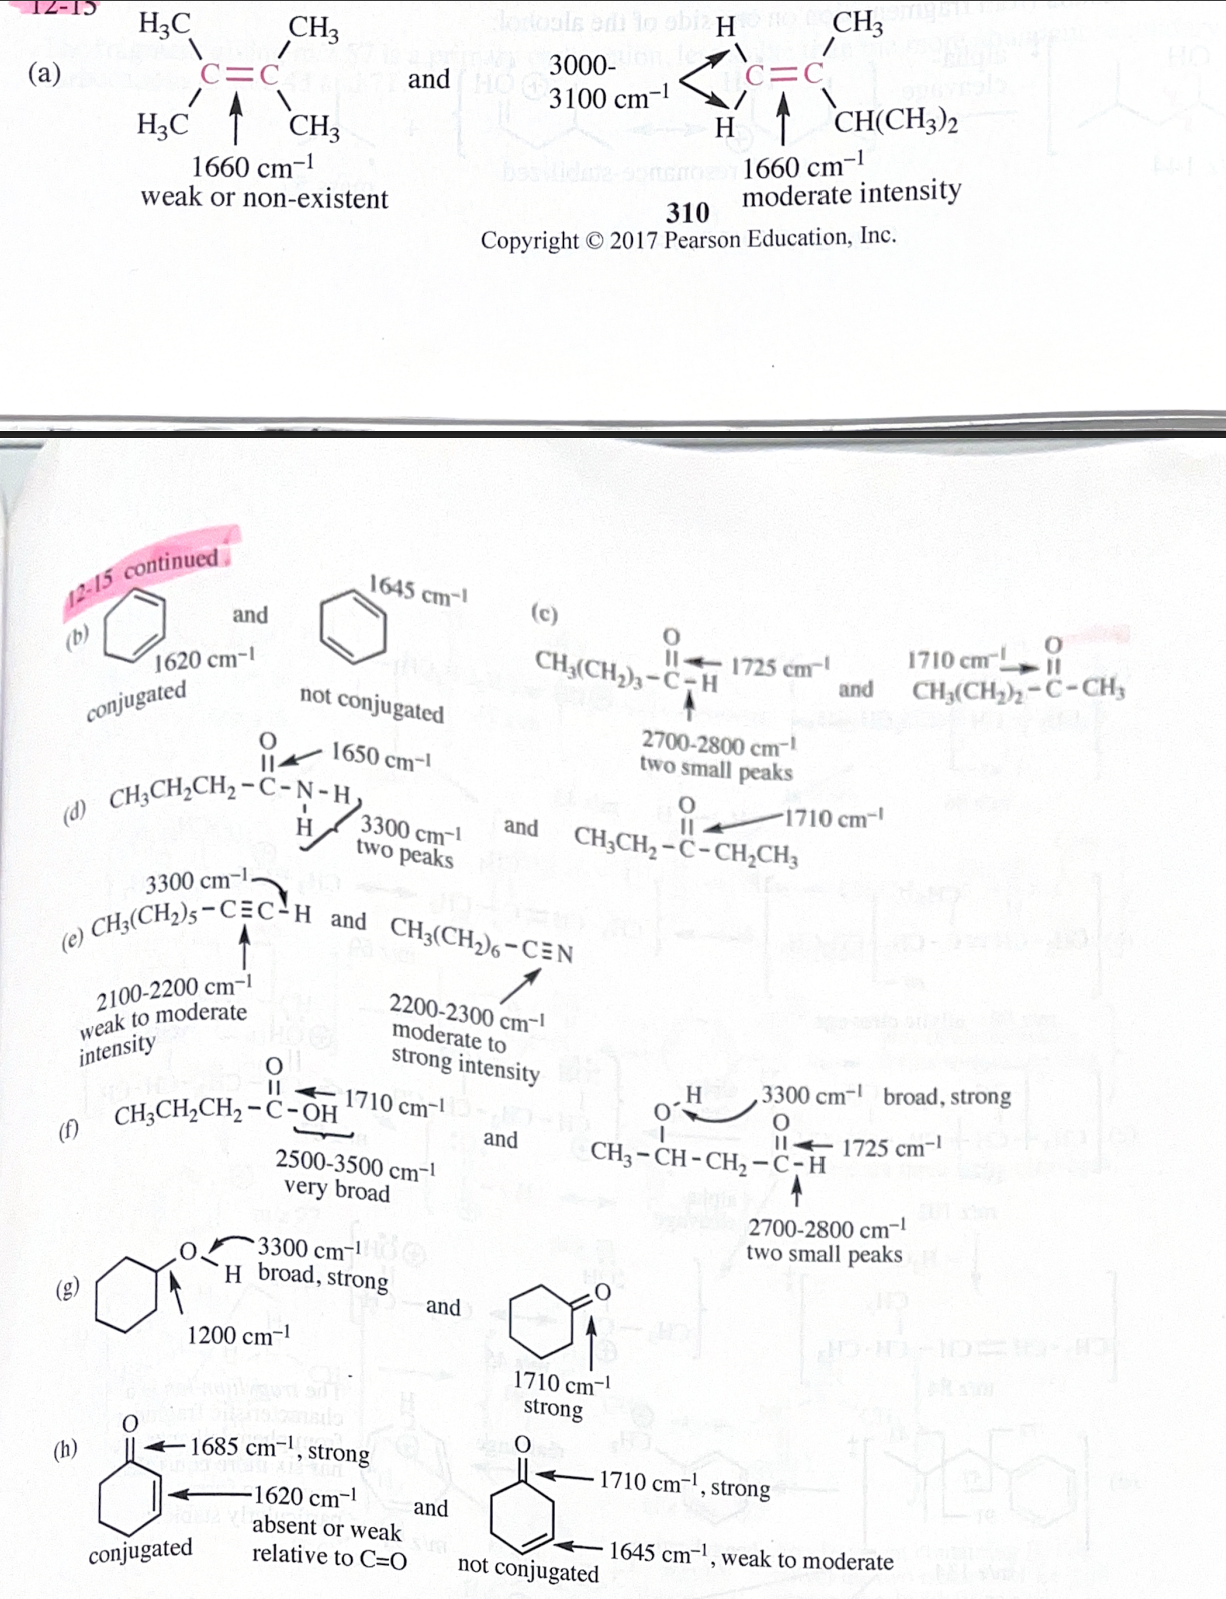 12-15
(a)
H₃C CH₃
C=C
H₃C CH₃
1660 cm⁻¹
weak or non-existent
and
3000-
3100 cm⁻¹
H CH₃
C=C
H CH(CH₃)₂
1660 cm⁻¹
moderate intensity
310
Copyright © 2017 Pearson Education, Inc.
12-15 continued
(b)
1620 cm⁻¹
conjugated
and
1645 cm⁻¹
not conjugated
(c)
O
CH₃(CH₂)₃-C-H
1725 cm⁻¹
2700-2800 cm⁻¹
two small peaks
and
1710 cm⁻¹
O
CH₃(CH₂)₂-C-CH₃
(d)
O
1650 cm⁻¹
CH₃CH₂CH₂-C-N-H
H
3300 cm⁻¹
two peaks
and
O
1710 cm⁻¹
CH₃CH₂-C-CH₂CH₃
(e)
3300 cm⁻¹
CH₃(CH₂)₅-C≡C-H and CH₃(CH₂)₆-C≡N
2100-2200 cm⁻¹
weak to moderate
intensity
2200-2300 cm⁻¹
moderate to
strong intensity
(f)
O
CH₃CH₂CH₂-C-OH
1710 cm⁻¹
2500-3500 cm⁻¹
very broad
and
O-H
3300 cm⁻¹ broad, strong
O
1725 cm⁻¹
CH₃-CH-CH₂-C-H
2700-2800 cm⁻¹
two small peaks
(g)
O
H
3300 cm⁻¹
broad, strong
1200 cm⁻¹
and
O
1710 cm⁻¹
strong
(h)
O
1685 cm⁻¹, strong
1620 cm⁻¹
absent or weak
relative to C=O
conjugated
and
O
1710 cm⁻¹, strong
1645 cm⁻¹, weak to moderate
not conjugated